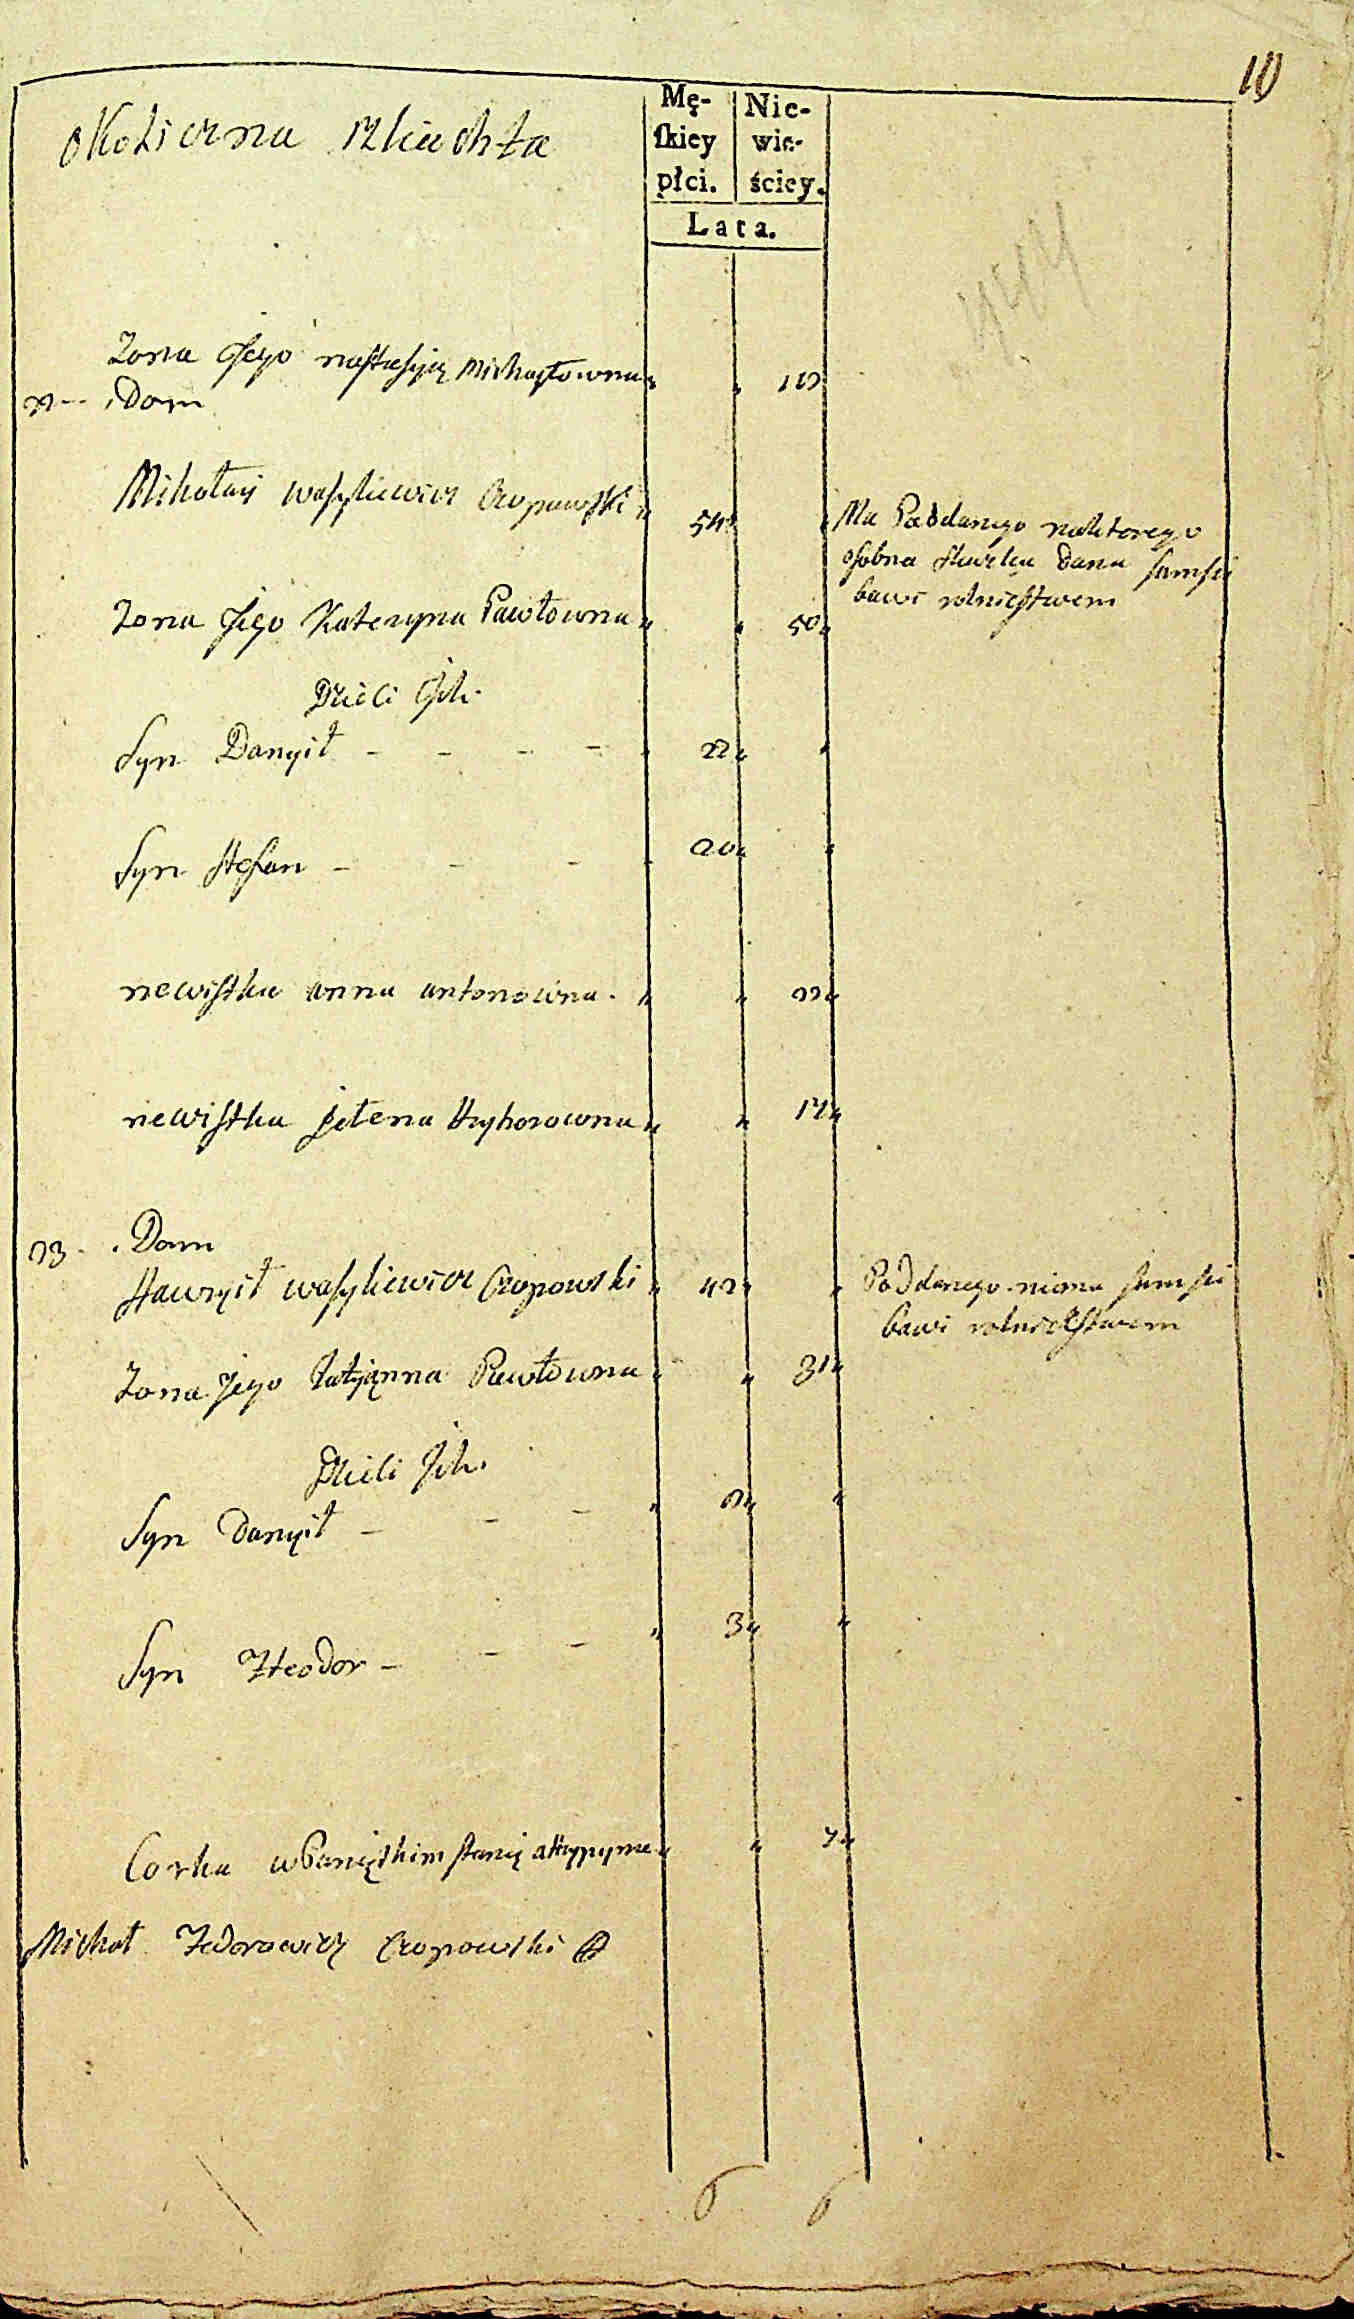 10
okoliczna szlachta
Mę-
skiey
płci.
Nie-
wie-
ściey.
Lata.
Zona Jego nastasyią Michayłowna
22 Dom
Mikołay wasyliewicz Czopowski 54
Ma Poddanego naktorego
osobna skazka dana samsię
bawi rolnictwem
Zona Jego Kateryna Pawłowna 50
Dzieci Ich
Syn Danyił 22
Syn Stefan 20
newistka anna antonowna 22
newistka jełena Hryhorowna
23 Dom
Hawryił wasyliewicz Czopowski 42
Poddanego niema samsię
bawi rolnictwem
Zona Jego Tatyjanna Pawłowna 31
Dzieci Ich
Syn Danyił
Syn Fteodor 3
Corka wPanięskim stanię
Michał Fedorowicz Czopowski
6 6